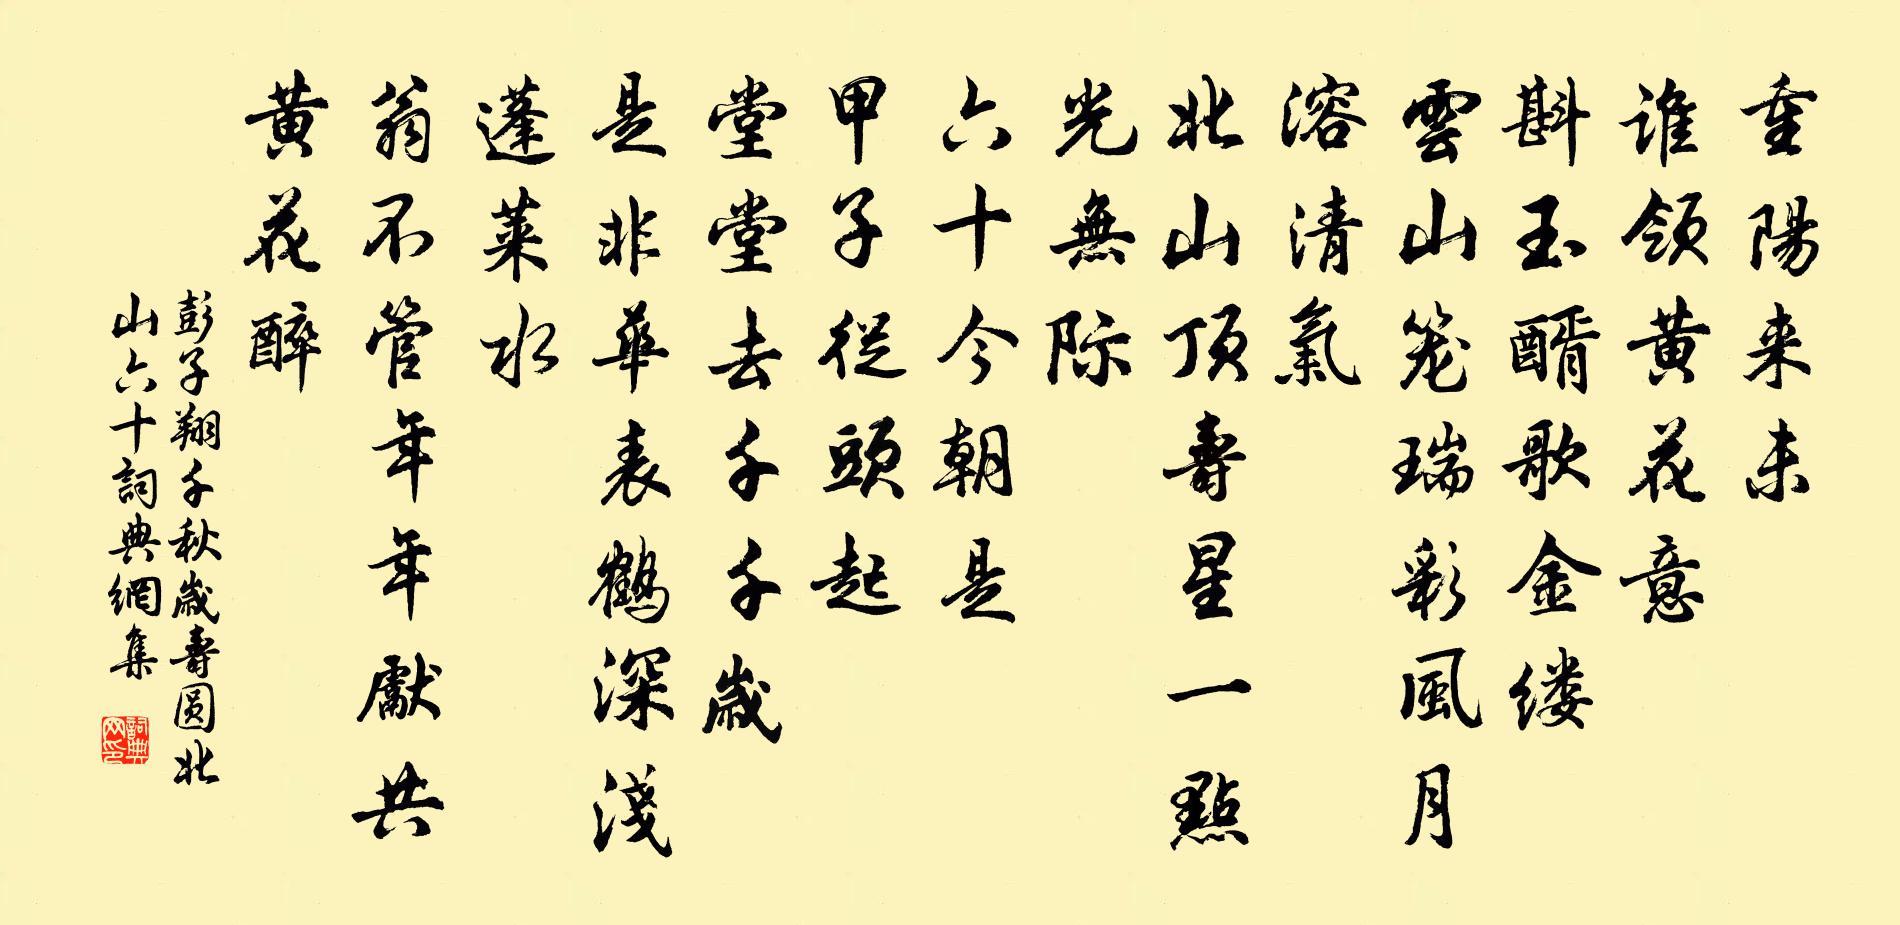 重陽来未
谁领黄花意
斟玉醑歌金缕
雲山笼瑞彩風月
溶清氣
北山顶壽星一點
光無际
六十今朝是
甲子從頭起
堂堂去千千歲
是非華表鹤深淺
蓬莱水
翁不管年年獻共
黄花醉
彭子翔千秋歲壽圆北
山六十詞典網集
詞典网印